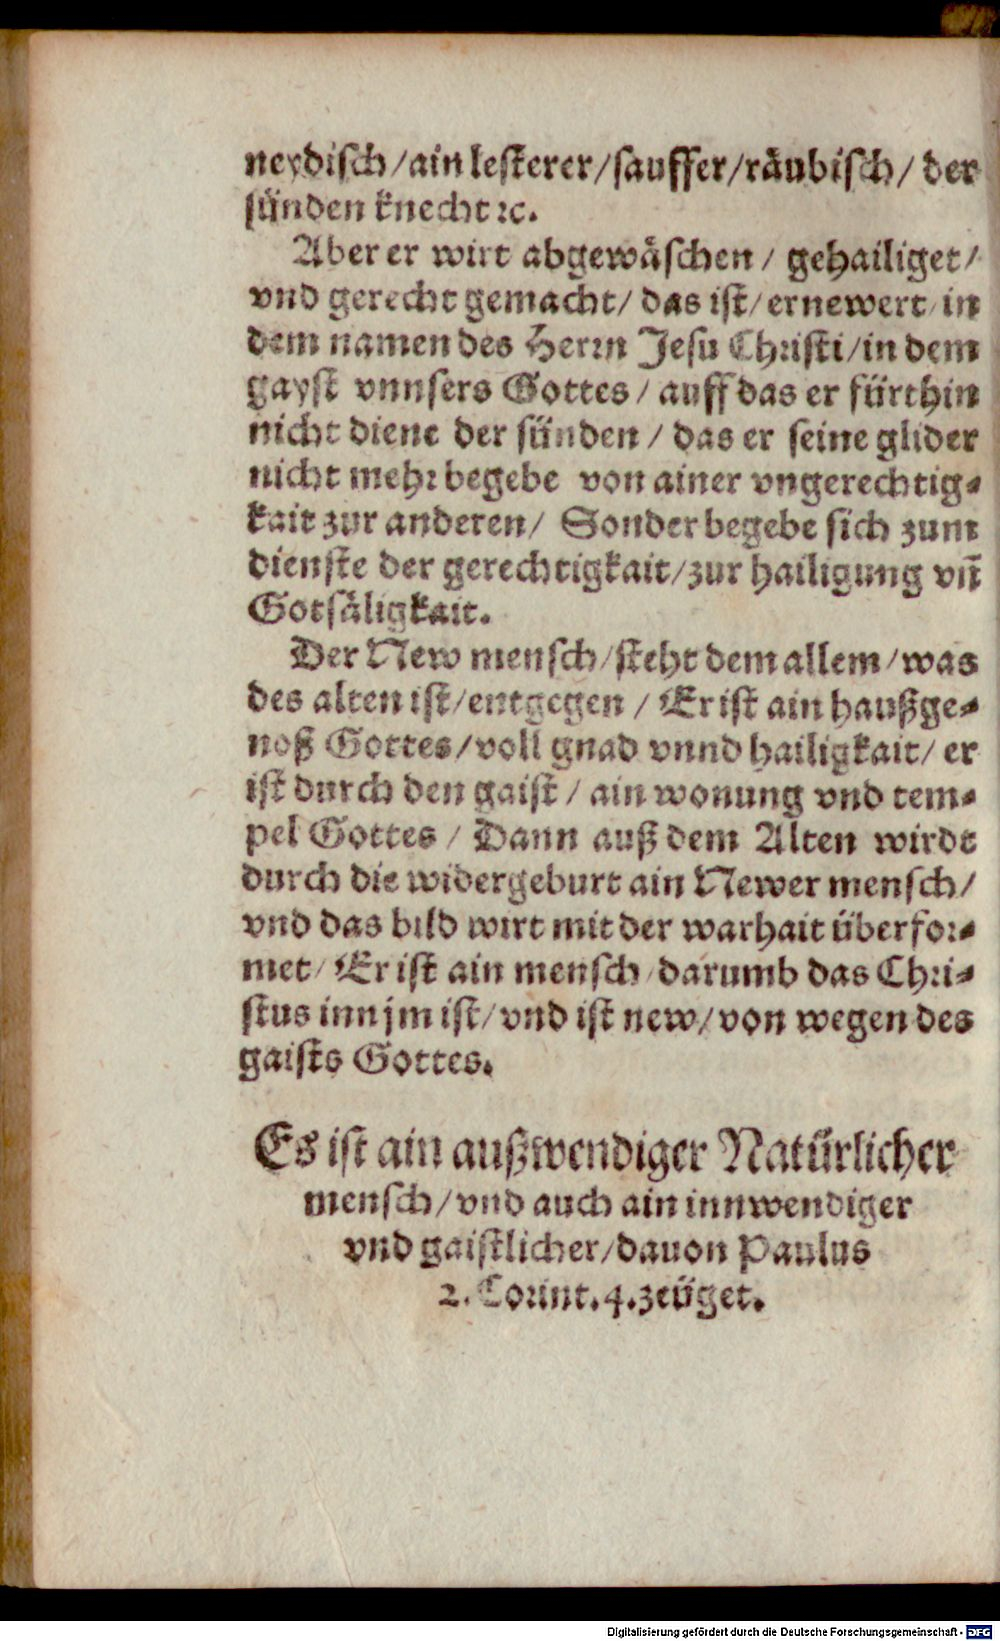 neydisch / ain lesterer / sauffer / räubisch / der
sünden knecht ꝛc.
Aber er wirt abgewäschen / gehailiget /
vnd gerecht gemacht / das ist / ernewert / in
dem namen des Herrn Jesu Christi / in dem
gayst vnnsers Gottes / auff das er fürthin
nicht diene der sünden / das er seine glider
nicht mehr begebe von ainer vngerechtig⸗
kait zur anderen / Sonder begebe sich zum
dienste der gerechtigkait / zur hailigung vñ
Gotsäligkait.
Der New mensch / steht dem allem / was
des alten ist / entgegen / Er ist ain haußge⸗
noß Gottes / voll gnad vnnd hailigkait / er
ist durch den gaist / ain wonung vnd tem⸗
pel Gottes / Dann auß dem Alten wirdt
durch die widergeburt ain Newer mensch /
vnd das bild wirt mit der warhait überfor⸗
met / Er ist ain mensch / darumb das Chri⸗
stus inn jm ist / vnd ist new / von wegen des
gaists Gottes.
Es ist ain außwendiger Natürlicher
mensch / vnd auch ain innwendiger
vnd gaistlicher / dauon Paulus
2. Corint. 4. zeüget.
Digitalisierung gefördert durch die Deutsche Forschungsgemeinschaft - DFG